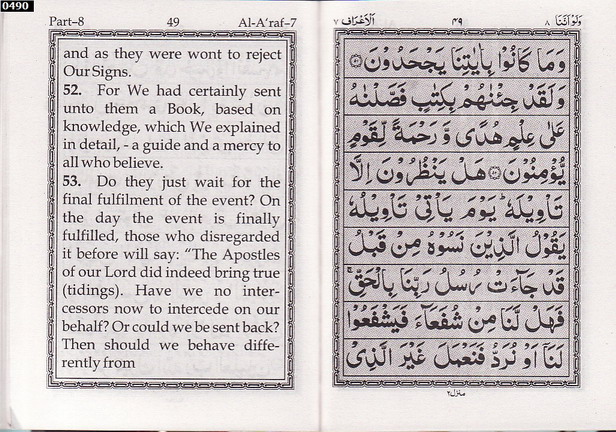 0490
Part–8 49 Al-A'raf–7
and as they were wont to reject
Our Signs.
52. For We had certainly sent
unto them a Book, based on
knowledge, which We explained
in detail, - a guide and a mercy to
all who believe.
53. Do they just wait for the
final fulfilment of the event? On
the day the event is finally
fulfilled, those who disregarded
it before will say: “The Apostles
of our Lord did indeed bring true
(tidings). Have we no inter-
cessors now to intercede on our
behalf? Or could we be sent back?
Then should we behave diffe-
rently from
ولو اننا ٨ ٤٩ الاعراف ٧
وَمَا كَانُوْا بِاٰيٰتِنَا يَجْحَدُوْنَ ۝٥١
وَلَقَدْ جِئْنٰهُمْ بِكِتٰبٍ فَصَّلْنٰهُ
عَلٰى عِلْمٍ هُدًى وَّ رَحْمَةً لِّقَوْمٍ
يُّؤْمِنُوْنَ ۝٥٢ هَلْ يَنْظُرُوْنَ اِلَّا
تَاْوِيْلَهٗ ؕ يَوْمَ يَاْتِيْ تَاْوِيْلُهٗ
يَقُوْلُ الَّذِيْنَ نَسُوْهُ مِنْ قَبْلُ
قَدْ جَآءَتْ رُسُلُ رَبِّنَا بِالْحَقِّ ۚ
فَهَلْ لَّنَا مِنْ شُفَعَآءَ فَيَشْفَعُوْا
لَنَآ اَوْ نُرَدُّ فَنَعْمَلَ غَيْرَ الَّذِيْ
منزل ٢